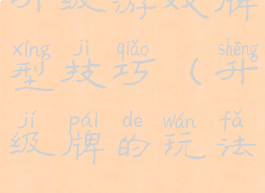 升级游戏牌
xíng jì qiǎo shēng
型技巧（升
jí pái de wán fǎ
级牌的玩法